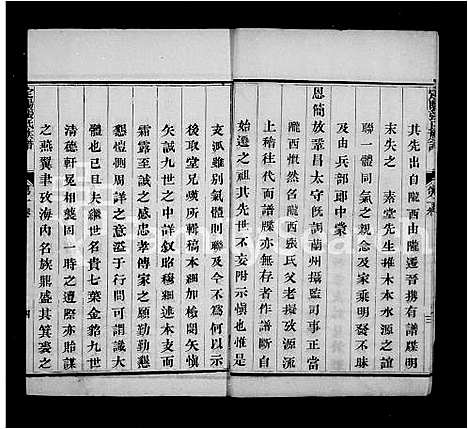 其先出自隴西由隴遷吾擁有譜牒明
末失之 素堂先生推木本水源之誼
聯一體同氣之觀念及家乘明發不昧
及由兵部郎中蒙
恩簡放鞏昌太守旣調蘭州攝監司事正當
隴西慨然念隴西張氏父老擬攷源流
上稽往代而譜牒亦亡作者作譜斷自
始遷之祖其先世不妄附示愼也惟是
支派雖別氣體則聯及今不爲何以示
後取堂兄嘆所輯稿本細加檢閱矢愼
矢誠九世之中詳叙昭穆縷述本支而
霜露至誠之感忠孝傳家之願勤勤懇
懇愷周詳之意溢于行間可謂識大
體也已且夫繼世名貴七葉金貂九世
清德軒冕相襲固一時之遭際亦貽謀
之燕翼聿攷海內名族熊盛其箕裘之